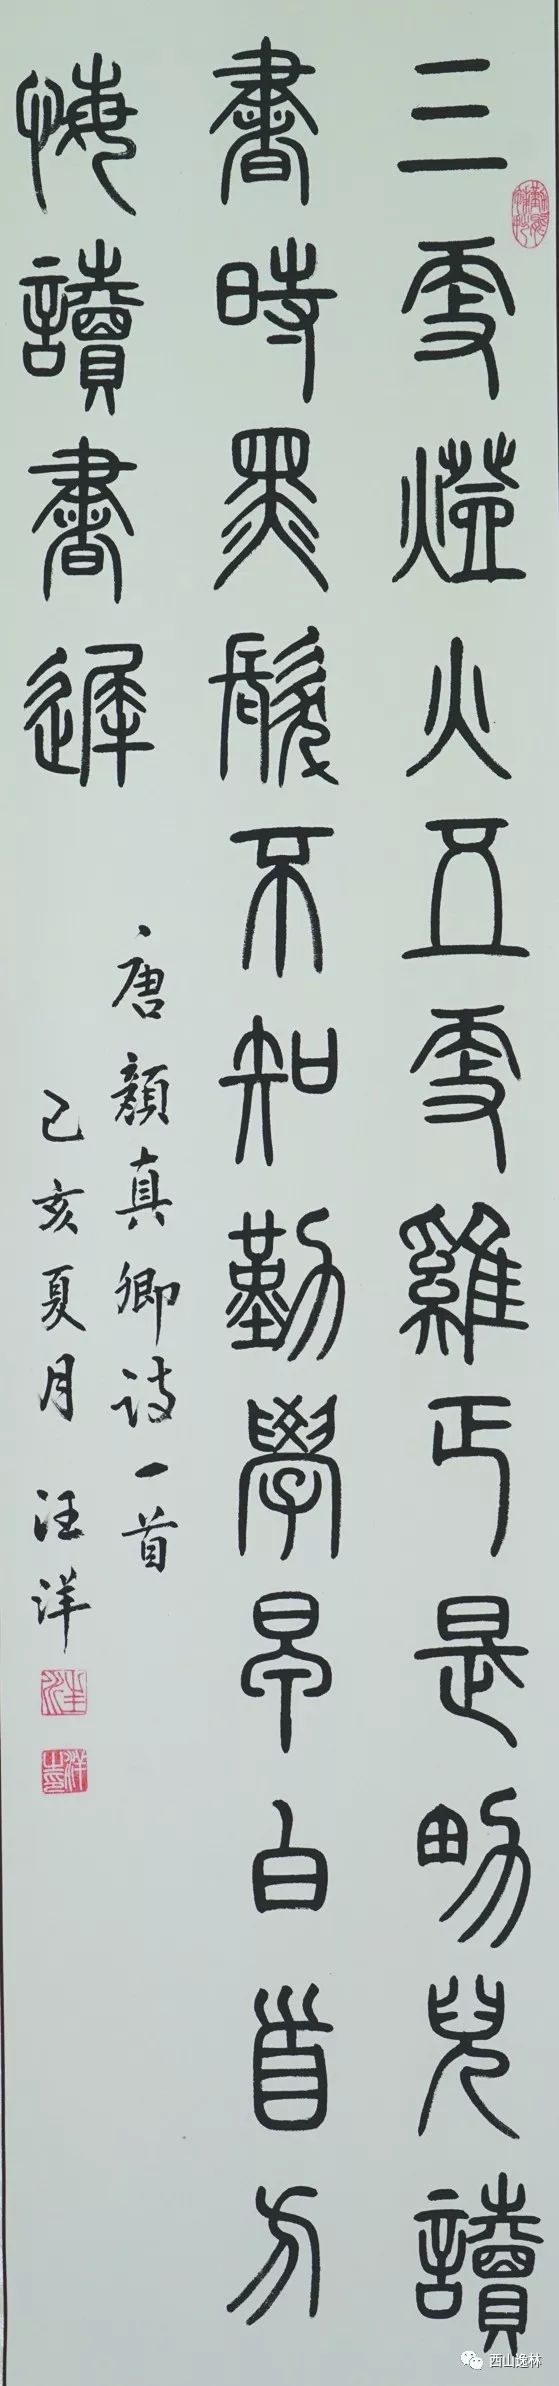 三更燈火五更雞正是男兒讀
書時黑髮不知勤學早白首方
悔讀書遲
唐顏真卿詩一首
己亥夏月 汪洋
西山逸林